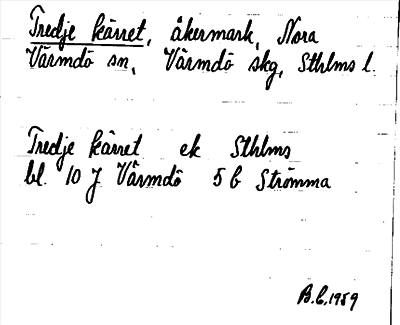 Tredje kärret, åkermark, Nora
Värmdö sn, Värmdö skg, Sthlms l.
Tredje kärret ek Sthlms
bl. 10 J Värmdö 5 b Strömma
B.C. 1959